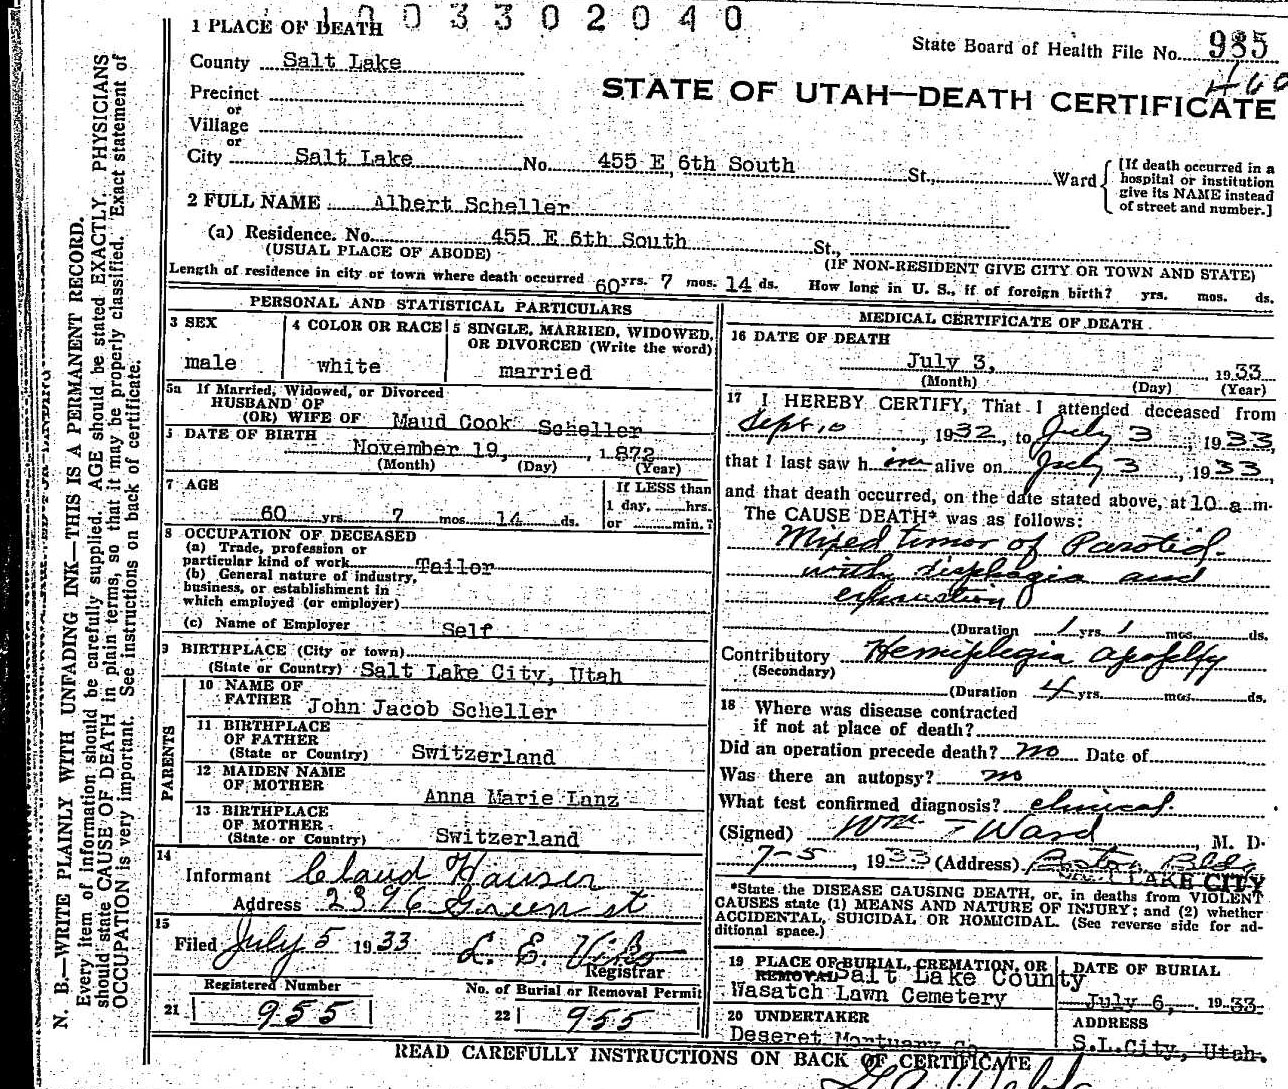 1003302040
1 PLACE OF DEATH
State Board of Health File No. 985
460
County Salt Lake
STATE OF UTAH—DEATH CERTIFICATE
Precinct
or
Village
or
City Salt Lake No. 455 E 6th South St., Ward
[If death occurred in a
hospital or institution
give its NAME instead
of street and number.]
2 FULL NAME Albert Scheller
(a) Residence. No. 455 E 6th South St.,
(USUAL PLACE OF ABODE) (IF NON-RESIDENT GIVE CITY OR TOWN AND STATE)
Length of residence in city or town where death occurred 60 yrs. 7 mos. 14 ds. How long in U. S., if of foreign birth? yrs. mos. ds.
PERSONAL AND STATISTICAL PARTICULARS
3 SEX
male
4 COLOR OR RACE
white
5 SINGLE, MARRIED, WIDOWED,
OR DIVORCED (Write the word)
married
5a If Married, Widowed, or Divorced
HUSBAND OF
(OR) WIFE OF Maud Cook Scheller
5 DATE OF BIRTH
November 19, 1872
(Month) (Day) (Year)
7 AGE
60 yrs. 7 mos. 14 ds.
If LESS than
1 day, hrs.
or min.?
8 OCCUPATION OF DECEASED
(a) Trade, profession or
particular kind of work Tailor
(b) General nature of industry,
business, or establishment in
which employed (or employer)
(c) Name of Employer Self
9 BIRTHPLACE (City or town)
(State or Country) Salt Lake City, Utah
PARENTS
10 NAME OF
FATHER John Jacob Scheller
11 BIRTHPLACE
OF FATHER
(State or Country) Switzerland
12 MAIDEN NAME
OF MOTHER Anna Marie Lanz
13 BIRTHPLACE
OF MOTHER
(State or Country) Switzerland
14
Informant Claud Hauser
Address 2396 Green st
15
Filed July 5 1933 L. E.
Registrar
Registered Number
21 955
No. of Burial or Removal Permit
22 955
MEDICAL CERTIFICATE OF DEATH
16 DATE OF DEATH
July 3, 1933
(Month) (Day) (Year)
17 I HEREBY CERTIFY, That I attended deceased from
Sept 10, 1932, to July 3, 1933,
that I last saw him alive on July 3, 1933,
and that death occurred, on the date stated above, at 10 a m.
The CAUSE DEATH* was as follows:
Mixed tumor of Parotid.
with disphagia and
exhaustion
(Duration 1 yrs. 1 mos. ds.
Contributory Hemiplegia apoplexy
(Secondary)
(Duration 4 yrs. mos. ds.
18 Where was disease contracted
if not at place of death?
Did an operation precede death? no Date of
Was there an autopsy? no
What test confirmed diagnosis? clinical
(Signed) Wm T Ward, M. D.
7-5, 1933 (Address) Boston Bldg
LAKE CITY
*State the DISEASE CAUSING DEATH, or, in deaths from VIOLENT
CAUSES state (1) MEANS AND NATURE OF INJURY; and (2) whether
ACCIDENTAL, SUICIDAL OR HOMICIDAL. (See reverse side for ad-
ditional space.)
19 PLACE OF BURIAL, CREMATION, OR
REMOVAL Salt Lake County
Wasatch Lawn Cemetery
DATE OF BURIAL
July 6, 1933
20 UNDERTAKER
Deseret Mortuary Co.
ADDRESS
S.L.City, Utah.
READ CAREFULLY INSTRUCTIONS ON BACK OF CERTIFICATE
N. B.—WRITE PLAINLY WITH UNFADING INK—THIS IS A PERMANENT RECORD.
Every item of information should be carefully supplied. AGE should be stated EXACTLY. PHYSICIANS
should state CAUSE OF DEATH in plain terms, so that it may be properly classified. Exact statement of
OCCUPATION is very important. See instructions on back of certificate.